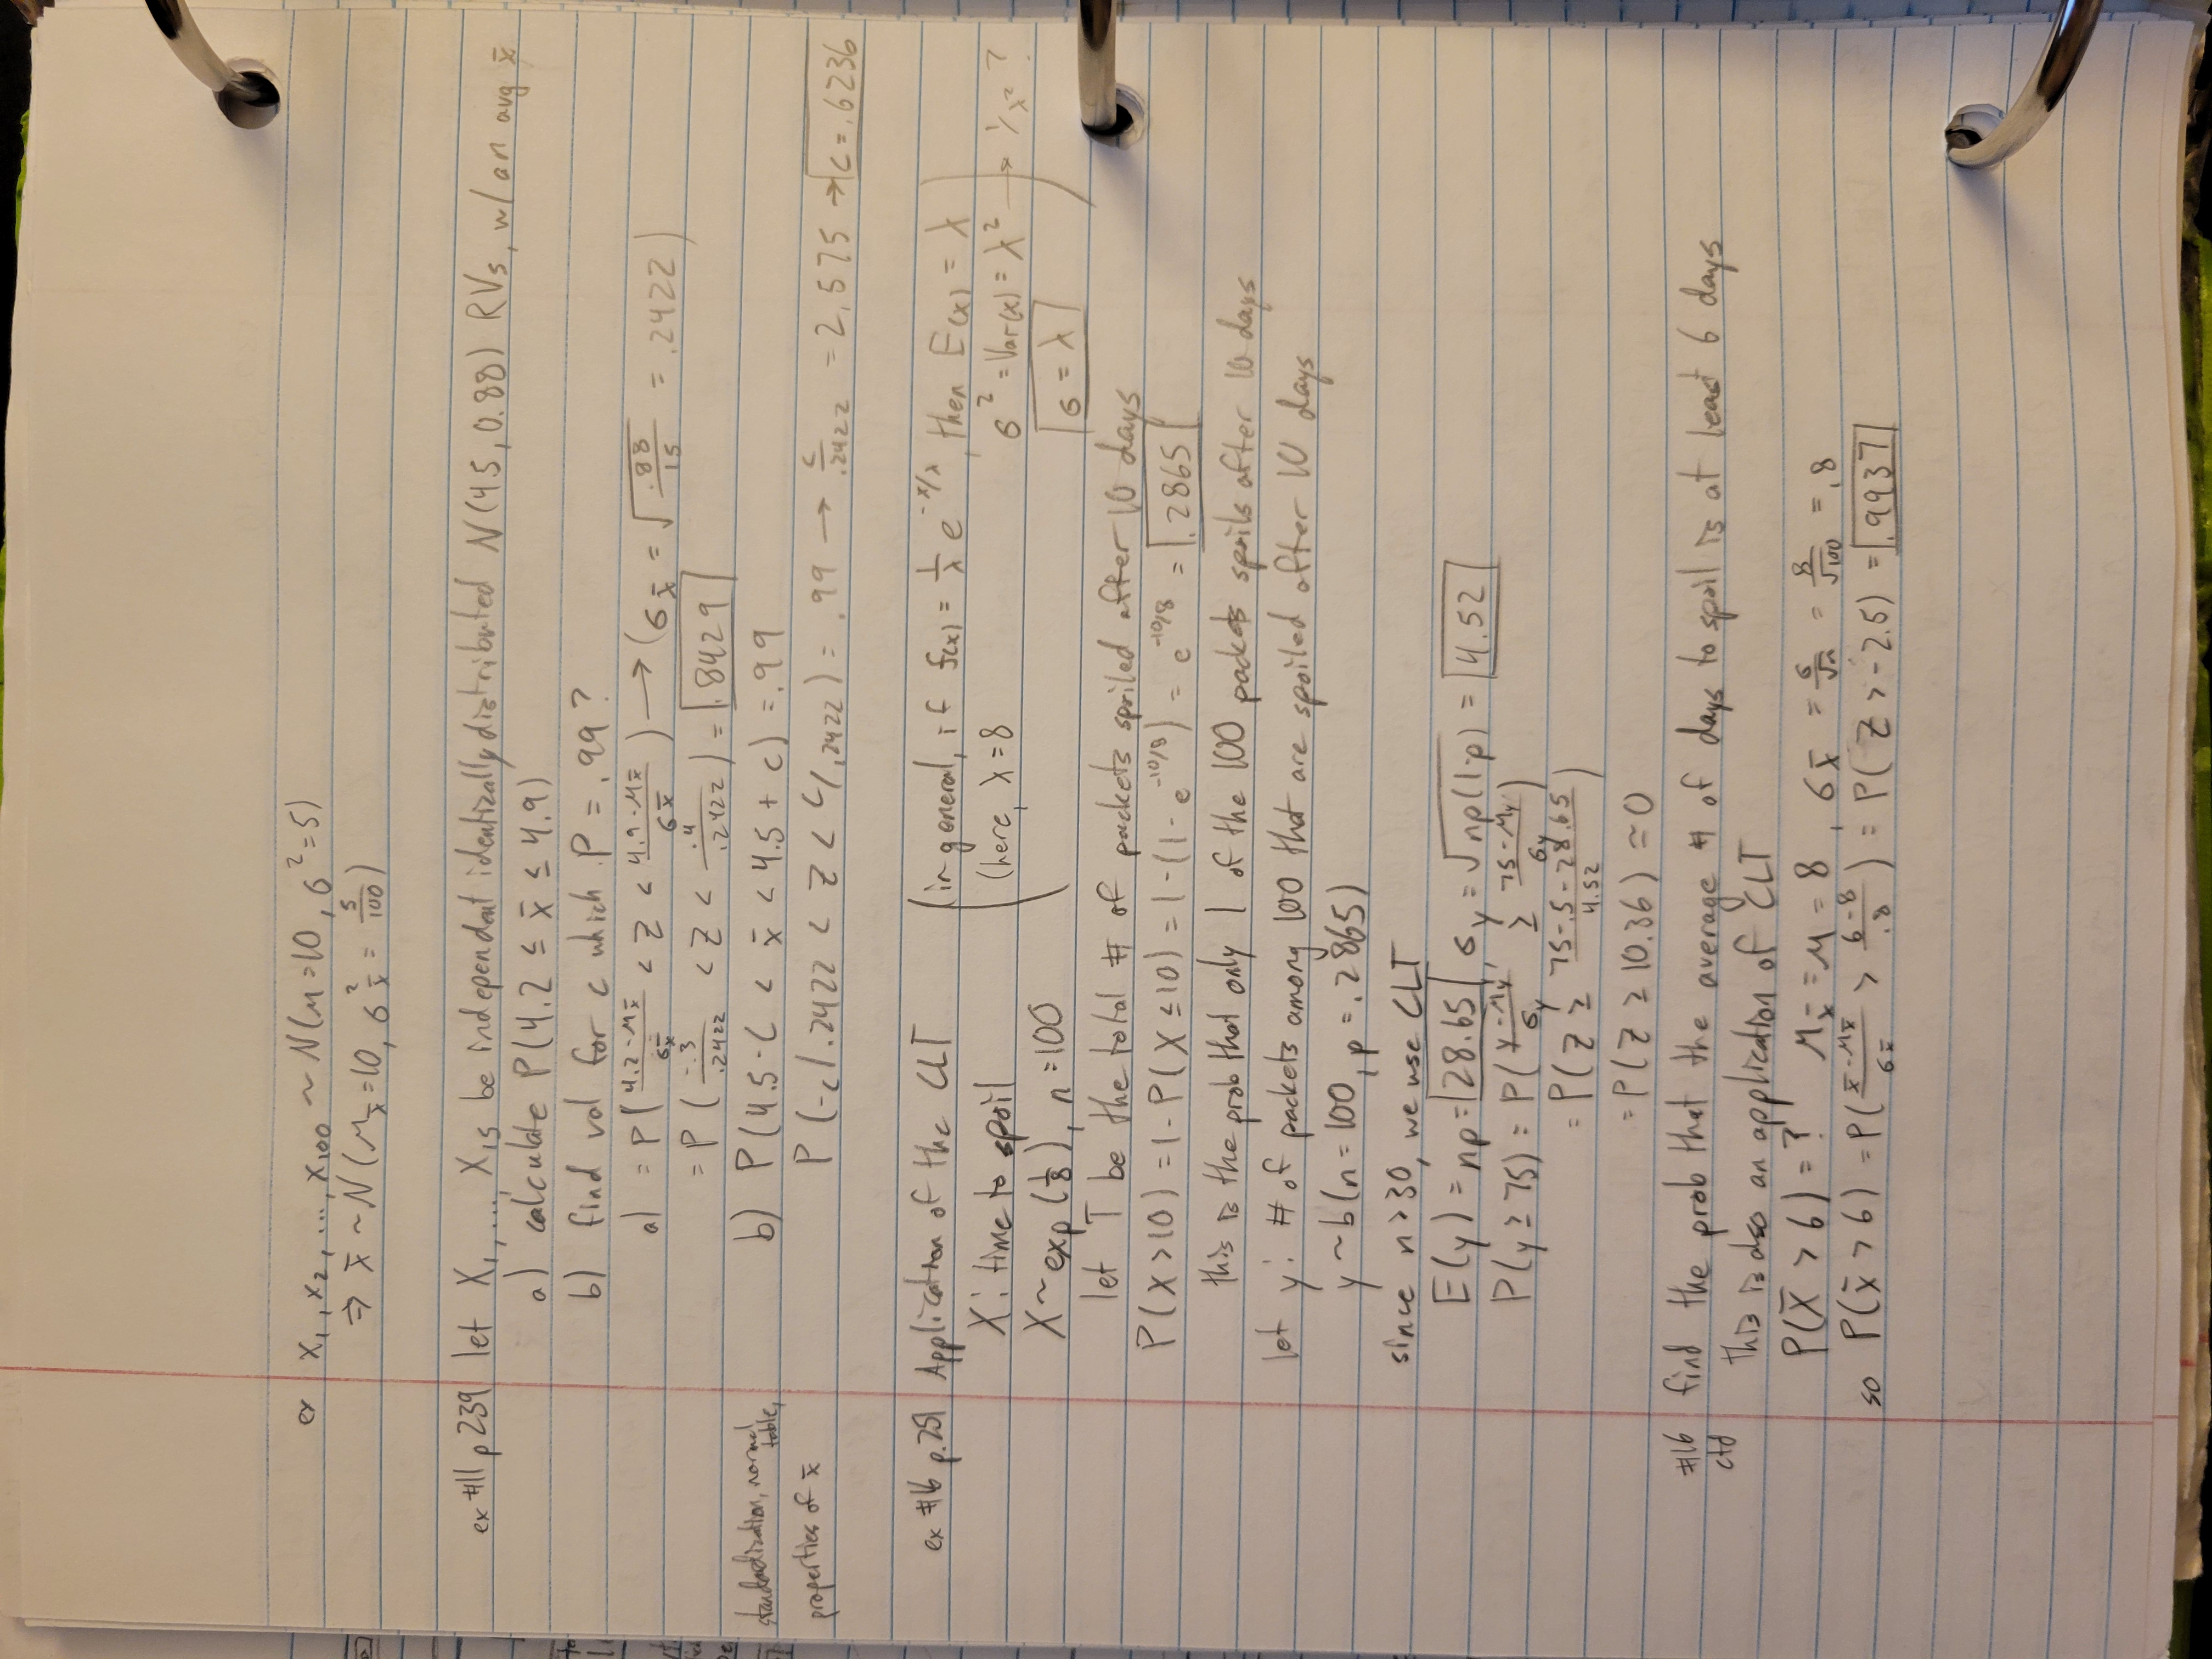 ex X₁, X₂, ..., X₁₀₀ ~ N(μ=10, σ²=5)
⇒ x̄ ~ N(μx̄=10, σ²x̄ = 5/100)
ex #11 p 239 let X₁, ..., X₁₅ be independent identically distributed N(45, 0.88) RVs, w/ an avg x̄
a) calculate P(4.2 ≤ x̄ ≤ 4.9)
b) find val for c which P = .99?
a) = P((4.2-μx̄)/σx̄ < Z < (4.9-μx̄)/σx̄) → (σx̄ = √(.88/15) = .2422)
= P(-.3/.2422 < Z < .4/.2422) = .8429
standardization, normal table,
properties of x̄
b) P(4.5-c < x̄ < 4.5 + c) = .99
P(-c/.2422 < Z < c/.2422) = .99 → c/.2422 = 2.575 → c = .6236
ex #16 p. 251 Application of the CLT (in general, if f(x) = 1/λ e^(-x/λ), then E(x) = λ
X: time to spoil (here, λ=8 σ² = Var(x) = λ² → 1/λ² ?
X~exp(1/8), n=100 σ = λ )
let T be the total # of packets spoiled after 10 days
P(X>10) = 1-P(X≤10) = 1-(1-e^(-10/8)) = e^(-10/8) = .2865
this is the prob that only 1 of the 100 packets spoils after 10 days
let y: # of packets among 100 that are spoiled after 10 days
y~b(n=100, p=.2865)
since n>30, we use CLT
E(y) = np = 28.65, σy = √(np(1-p)) = 4.52
P(y≥75) = P((y-μy)/σy ≥ (75-μy)/σy)
= P(Z ≥ (75-.5-28.65)/4.52)
= P(Z ≥ 10.36) ≈ 0
#16 ctd find the prob that the average # of days to spoil is at least 6 days
this is also an application of CLT
P(X̄ > 6) = ? μx̄ = μ = 8, σx̄ = σ/√n = 8/√100 = .8
so P(x̄ > 6) = P((x̄-μx̄)/σx̄ > (6-8)/.8) = P(Z > -2.5) = .9937